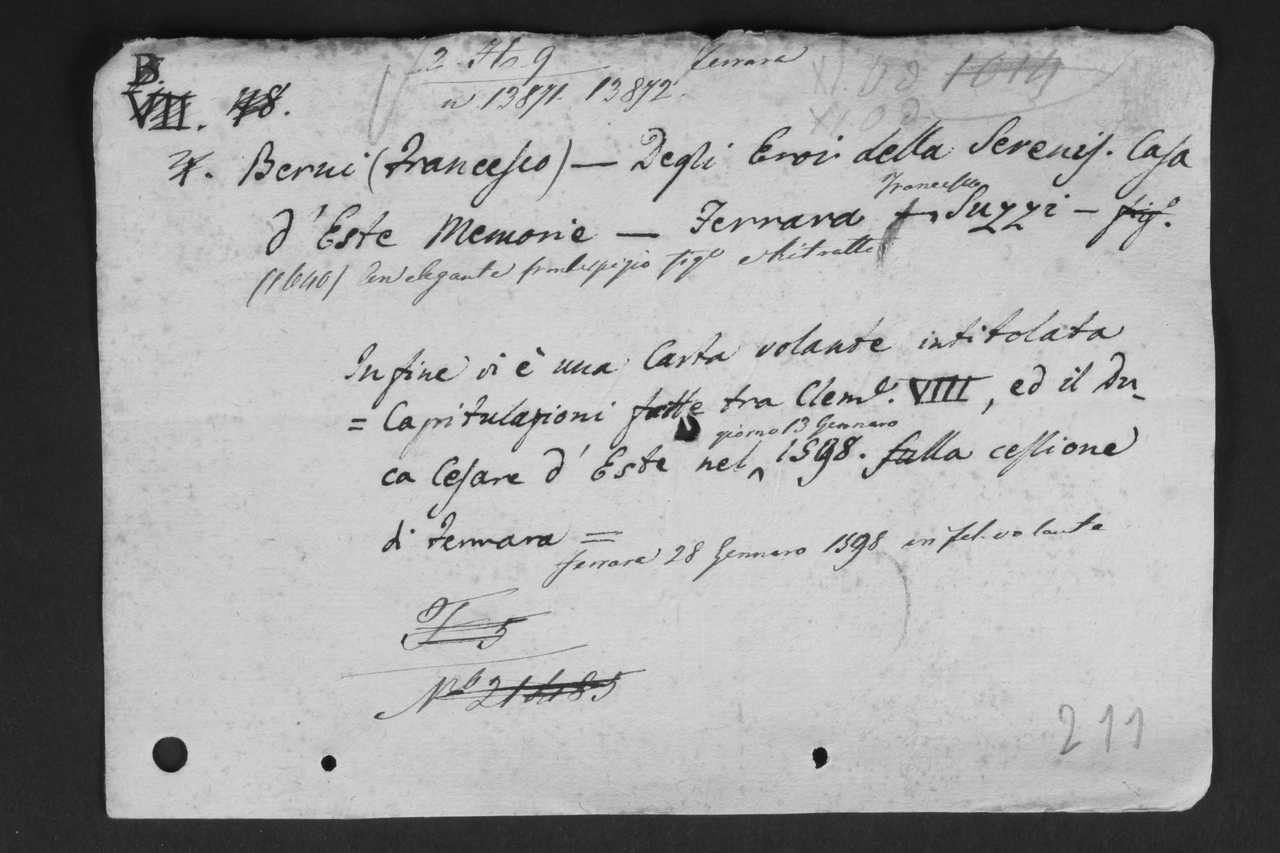 B.
VIII. 48.
2. H. 9 Ferrara
n 13871. 13872.
XI. D8 1614
4. Berni (Francesco) — Degli Eroi della Sereniss. Casa
Francesco
d'Este Memorie — Ferrara Suzzi — fig.º
(1640) Con elegante frontespizio fig.º e Ritratti
In fine vi è una Carta volante intitolata
= Capitulazioni fatte tra Clem.e VIII, ed il Du-
giorno 13 Gennaro
ca Cesare d'Este nel ^ 1598. sulla cessione
di Ferrara =
Ferrara 28 Gennaro 1598 in fol. volante
N.º 21485
211